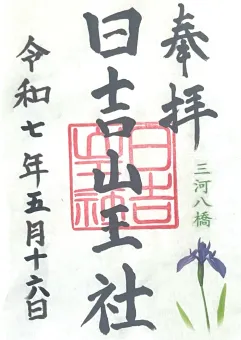 奉拝
三河八橋
日吉山王社
令和七年五月十六日